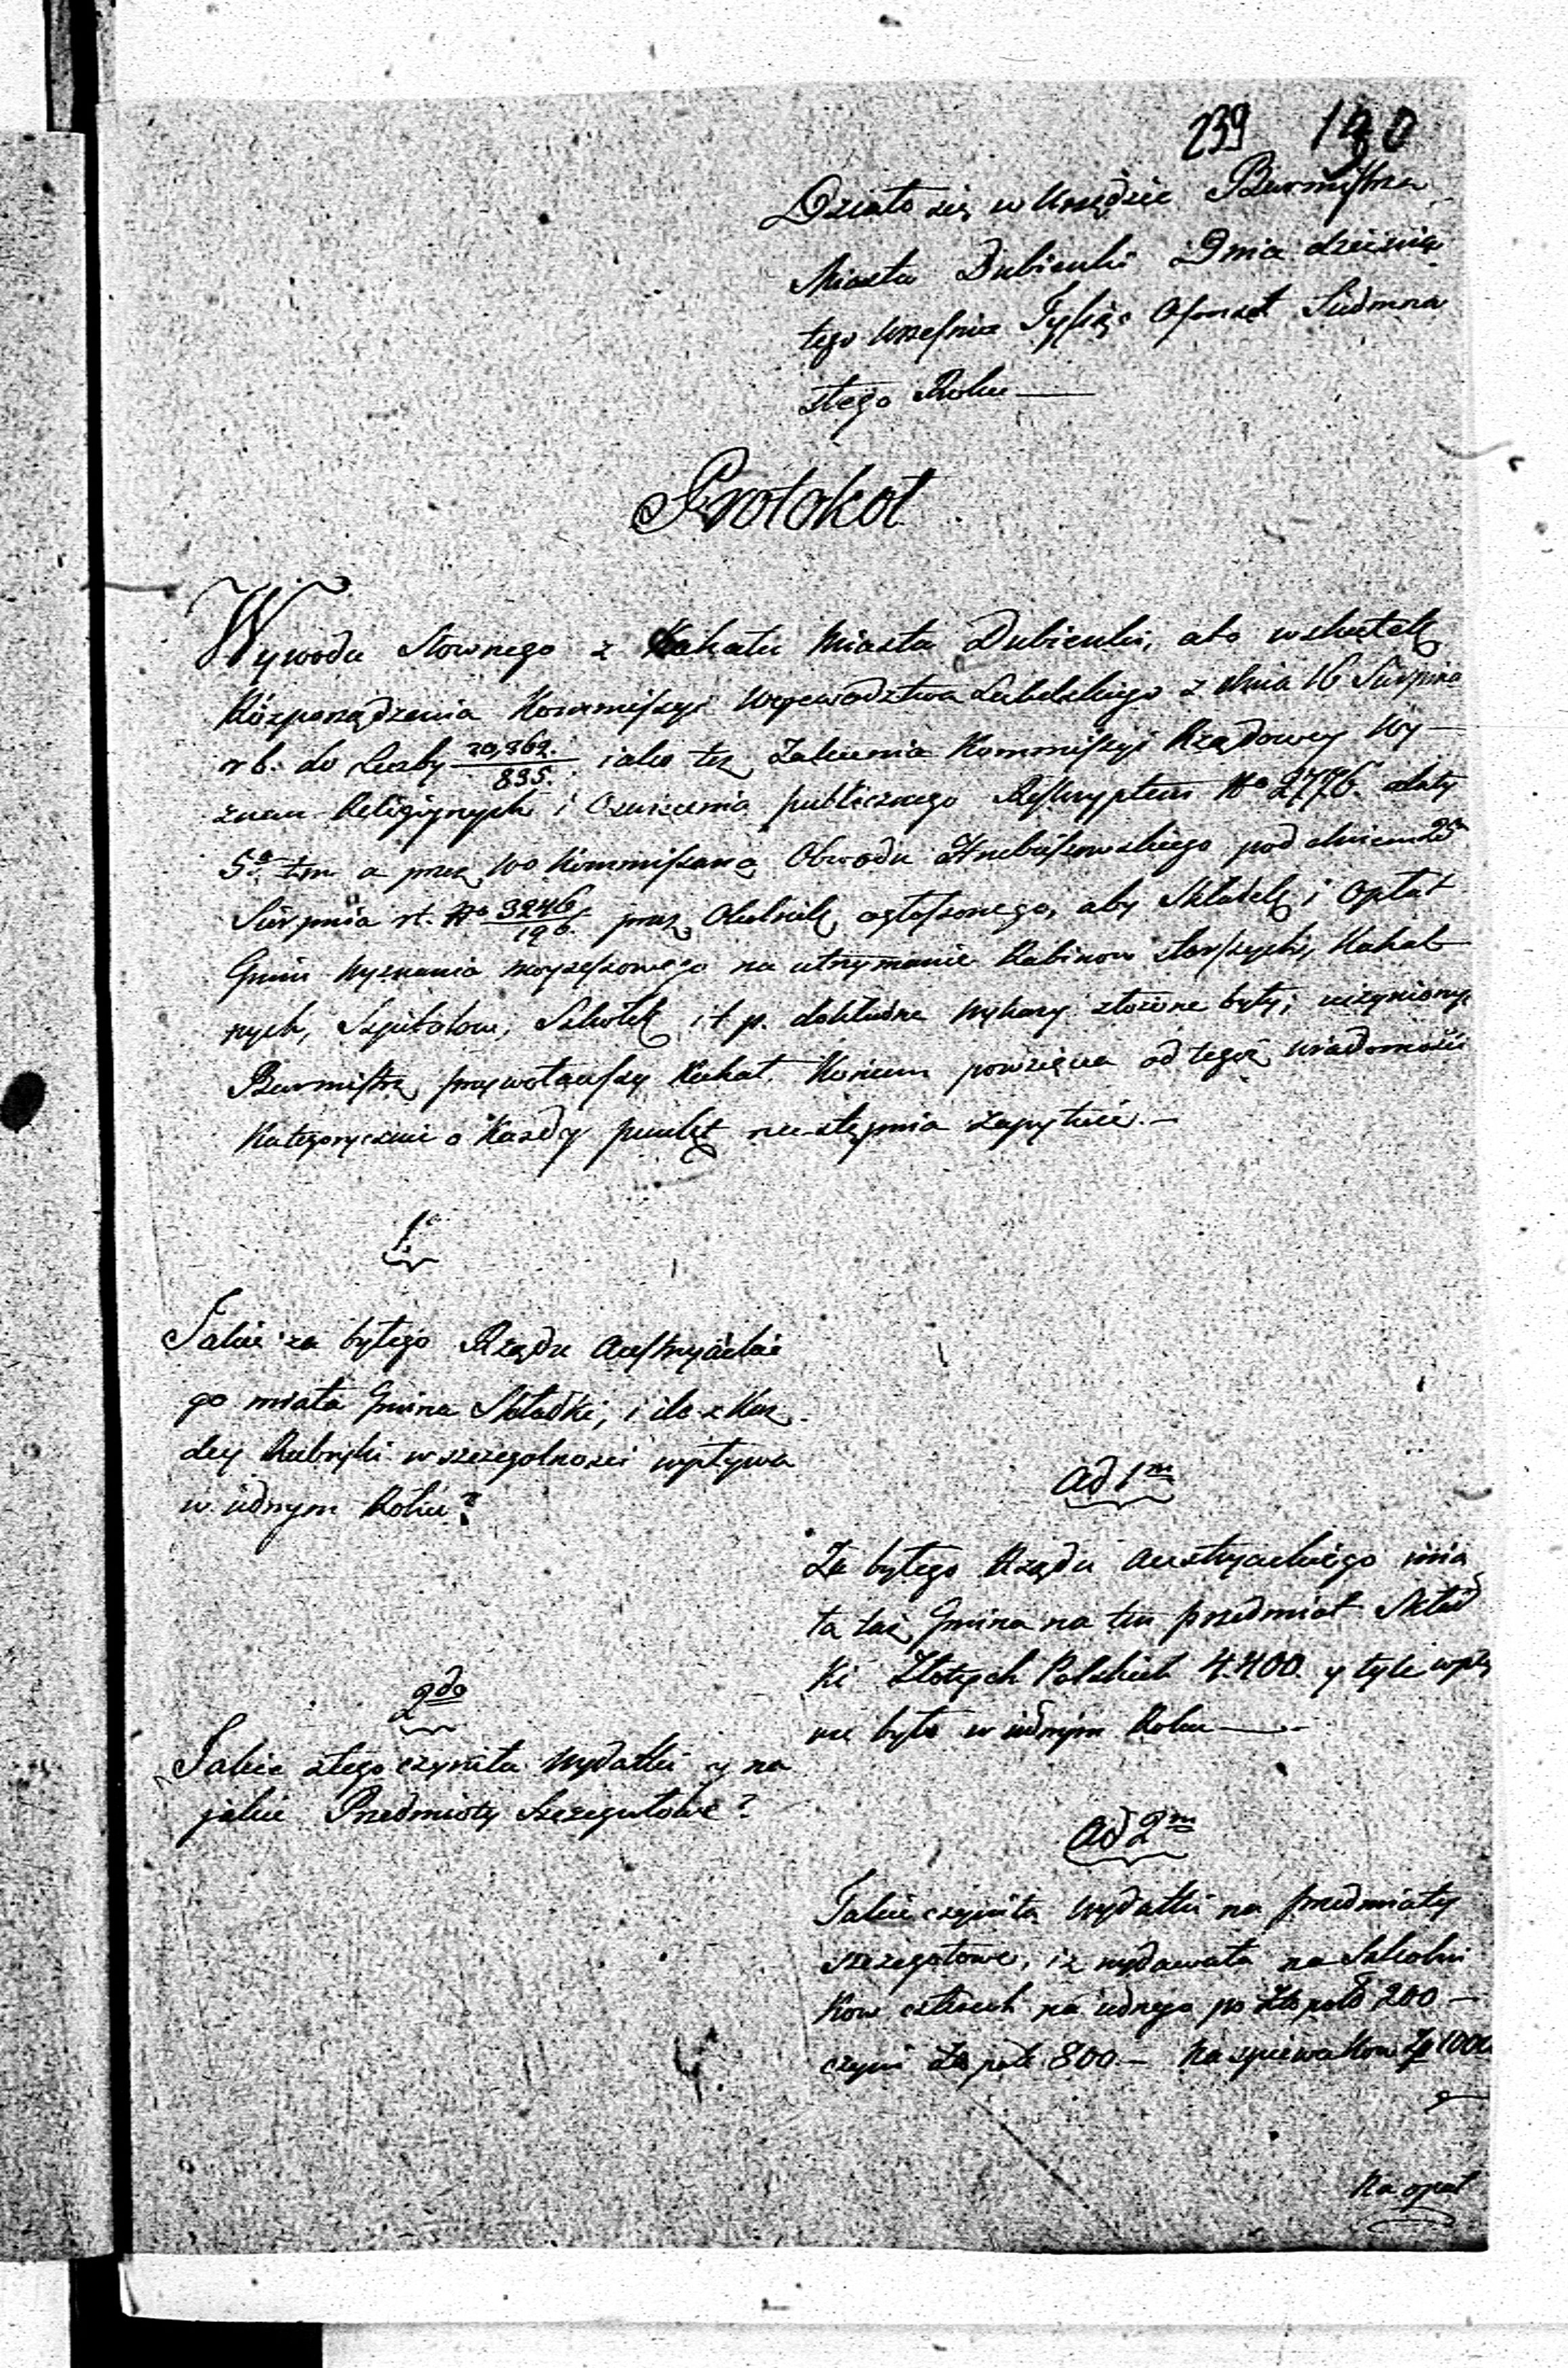 239 190
Działo się w Urzędzie Burmistrza
Miasta Dubienki Dnia dziewią
tego Września Tysiąc Ośmset Siedmna
stego Roku —
Protokoł
Wywodu Słownego z Kahału Miasta Dubienki, a to w skutek
Rozporządzenia Kommissyi Wojewodztwa Lubelskiego z dnia 16 Sierpnia
r b. do Liczby 20,362./835. iako też Zalecenia Kommissyi Rządowey Wy-
znan Religiynych i Oswiecenia publicznego Reskryptem No 2776. daty
5o a przez Wo Kommissarza Obwodu Hrubieszowskiego pod dniem 25
Sierpnia rb. No 3246/196. przez Okolnik ogłoszonego, aby Składek i Opłat
Gmin Wyznania moyżeszowego na utrzymanie Rabinow starszych, Kahal
nych, Szpitalow, Szkołek i t. p. dokładne Wykazy złożone były;
Burmistrz przywoławszy Kahał. Koncem powzięcia od tegoż wiadomości
Kategorycznie o Każdy punkt następnie zapytuie. —
1o
Jakie za byłego Rządu Austryackie
go miała Gmina Składki, i ile z Kaz
dey Rubryki w szczegolnosci wpływa
w iednym Roku?
ad 1m
Za byłego Rządu Austryackiego mia
ła taż Gmina na ten przedmiot Skład
ki Złotych Polskich 4.400 y tyle wpły
nie było w iednym Roku —
2do
Jakie z tego czyniła Wydatki y na
jakie Przedmioty Szczegułowe?
ad 2m
Takie czyniła wydatki na przedmioty
szczegołowe, iż wydawała na Szkolni
kow cztérech na iednego po Zło pols 200 —
czyni Zło pols 800. — Na spiewakow Zp 1000
Na opał